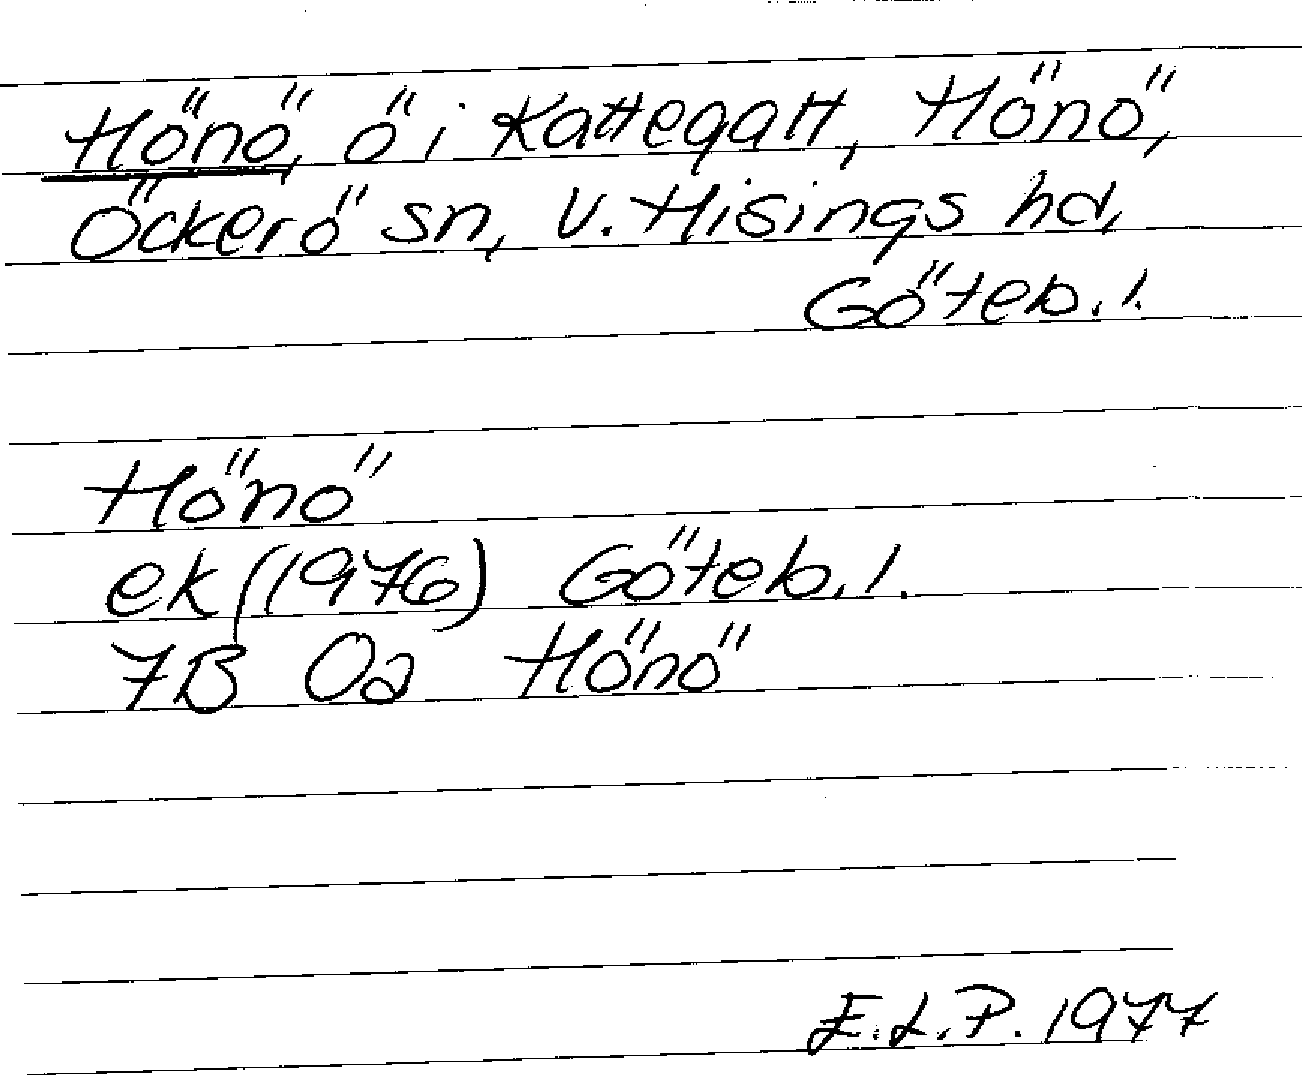 Hönö, ö i Kattegatt, Hönö,
Öckerö sn, V. Hisings hd,
Göteb. l.
Hönö
ek (1976) Göteb. l.
7B 0a Hönö
E.L.P. 1977